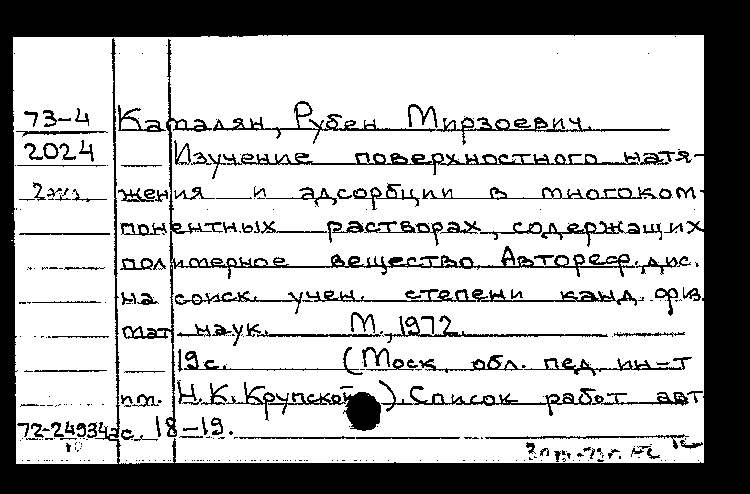 73-4 Каталян, Рубен Мирзоевич.
2024 Изучение поверхностного натя-
2экз. жения и адсорбции в многоком-
понентных растворах, содержащих
полимерное вещество. Автореф. дис.
на соиск. учен. степени канд. физ.
мат. наук. М., 1972.
19с. (Моск. обл. пед. ин-т
им. Н.К.Крупской). Список работ авт
с. 18-19.
72-24934